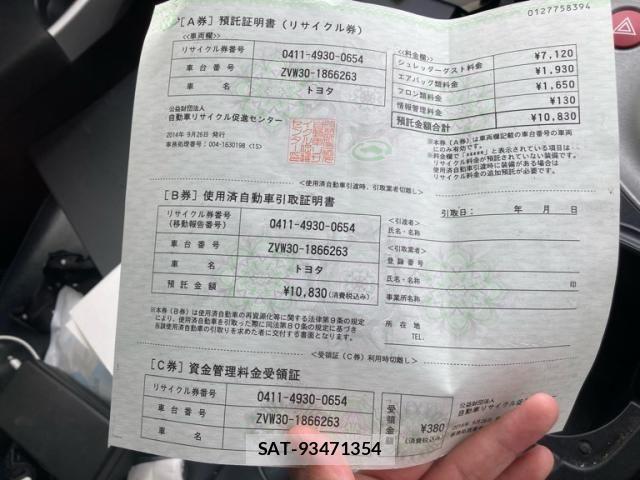 0127758394
[A券] 預託証明書 (リサイクル券)
<車両欄>
リサイクル券番号 0411-4930-0654
車台番号 ZVW30-1866263
車名 トヨタ
公益財団法人
自動車リサイクル促進センター
2014年 9月26日 発行
事務処理番号:004-1630198 <15>
<料金欄>
シュレッダーダスト料金 ¥7,120
エアバッグ類料金 ¥1,930
フロン類料金 ¥1,650
情報管理料金 ¥130
預託金額合計 ¥10,830
※本券(A券)は車両欄記載の車台番号の車両
にのみ有効です。
※料金欄で「*****」と表示されている項目は
リサイクル料金が預託されていない装備です。
使用済自動車引渡時に装備がある場合は
リサイクル料金の追加預託が必要です。
<使用済自動車引渡時、引取業者切離し>
[B券] 使用済自動車引取証明書
引取日: 年 月 日
リサイクル券番号
(移動報告番号) 0411-4930-0654
車台番号 ZVW30-1866263
車名 トヨタ
預託金額 ¥10,830(消費税込み)
<引渡者>
氏名・名称
<引取業者>
登録番号
氏名・名称 印
事業所名称
所在地
TEL.
※本券(B券)は使用済自動車の再資源化等に関する法律第9条の規定
により、使用済自動車を引取った際に同法第80条の規定に基づき
当該使用済自動車の引取りを求めた者に交付する書面となります。
<受領証(C券)利用時切離し>
[C券] 資金管理料金受領証
リサイクル券番号 0411-4930-0654
車台番号 ZVW30-1866263
車名
受領金額 ¥380
(消費税込み)
公益財団法人
自動車リサイクル促進
SAT-93471354